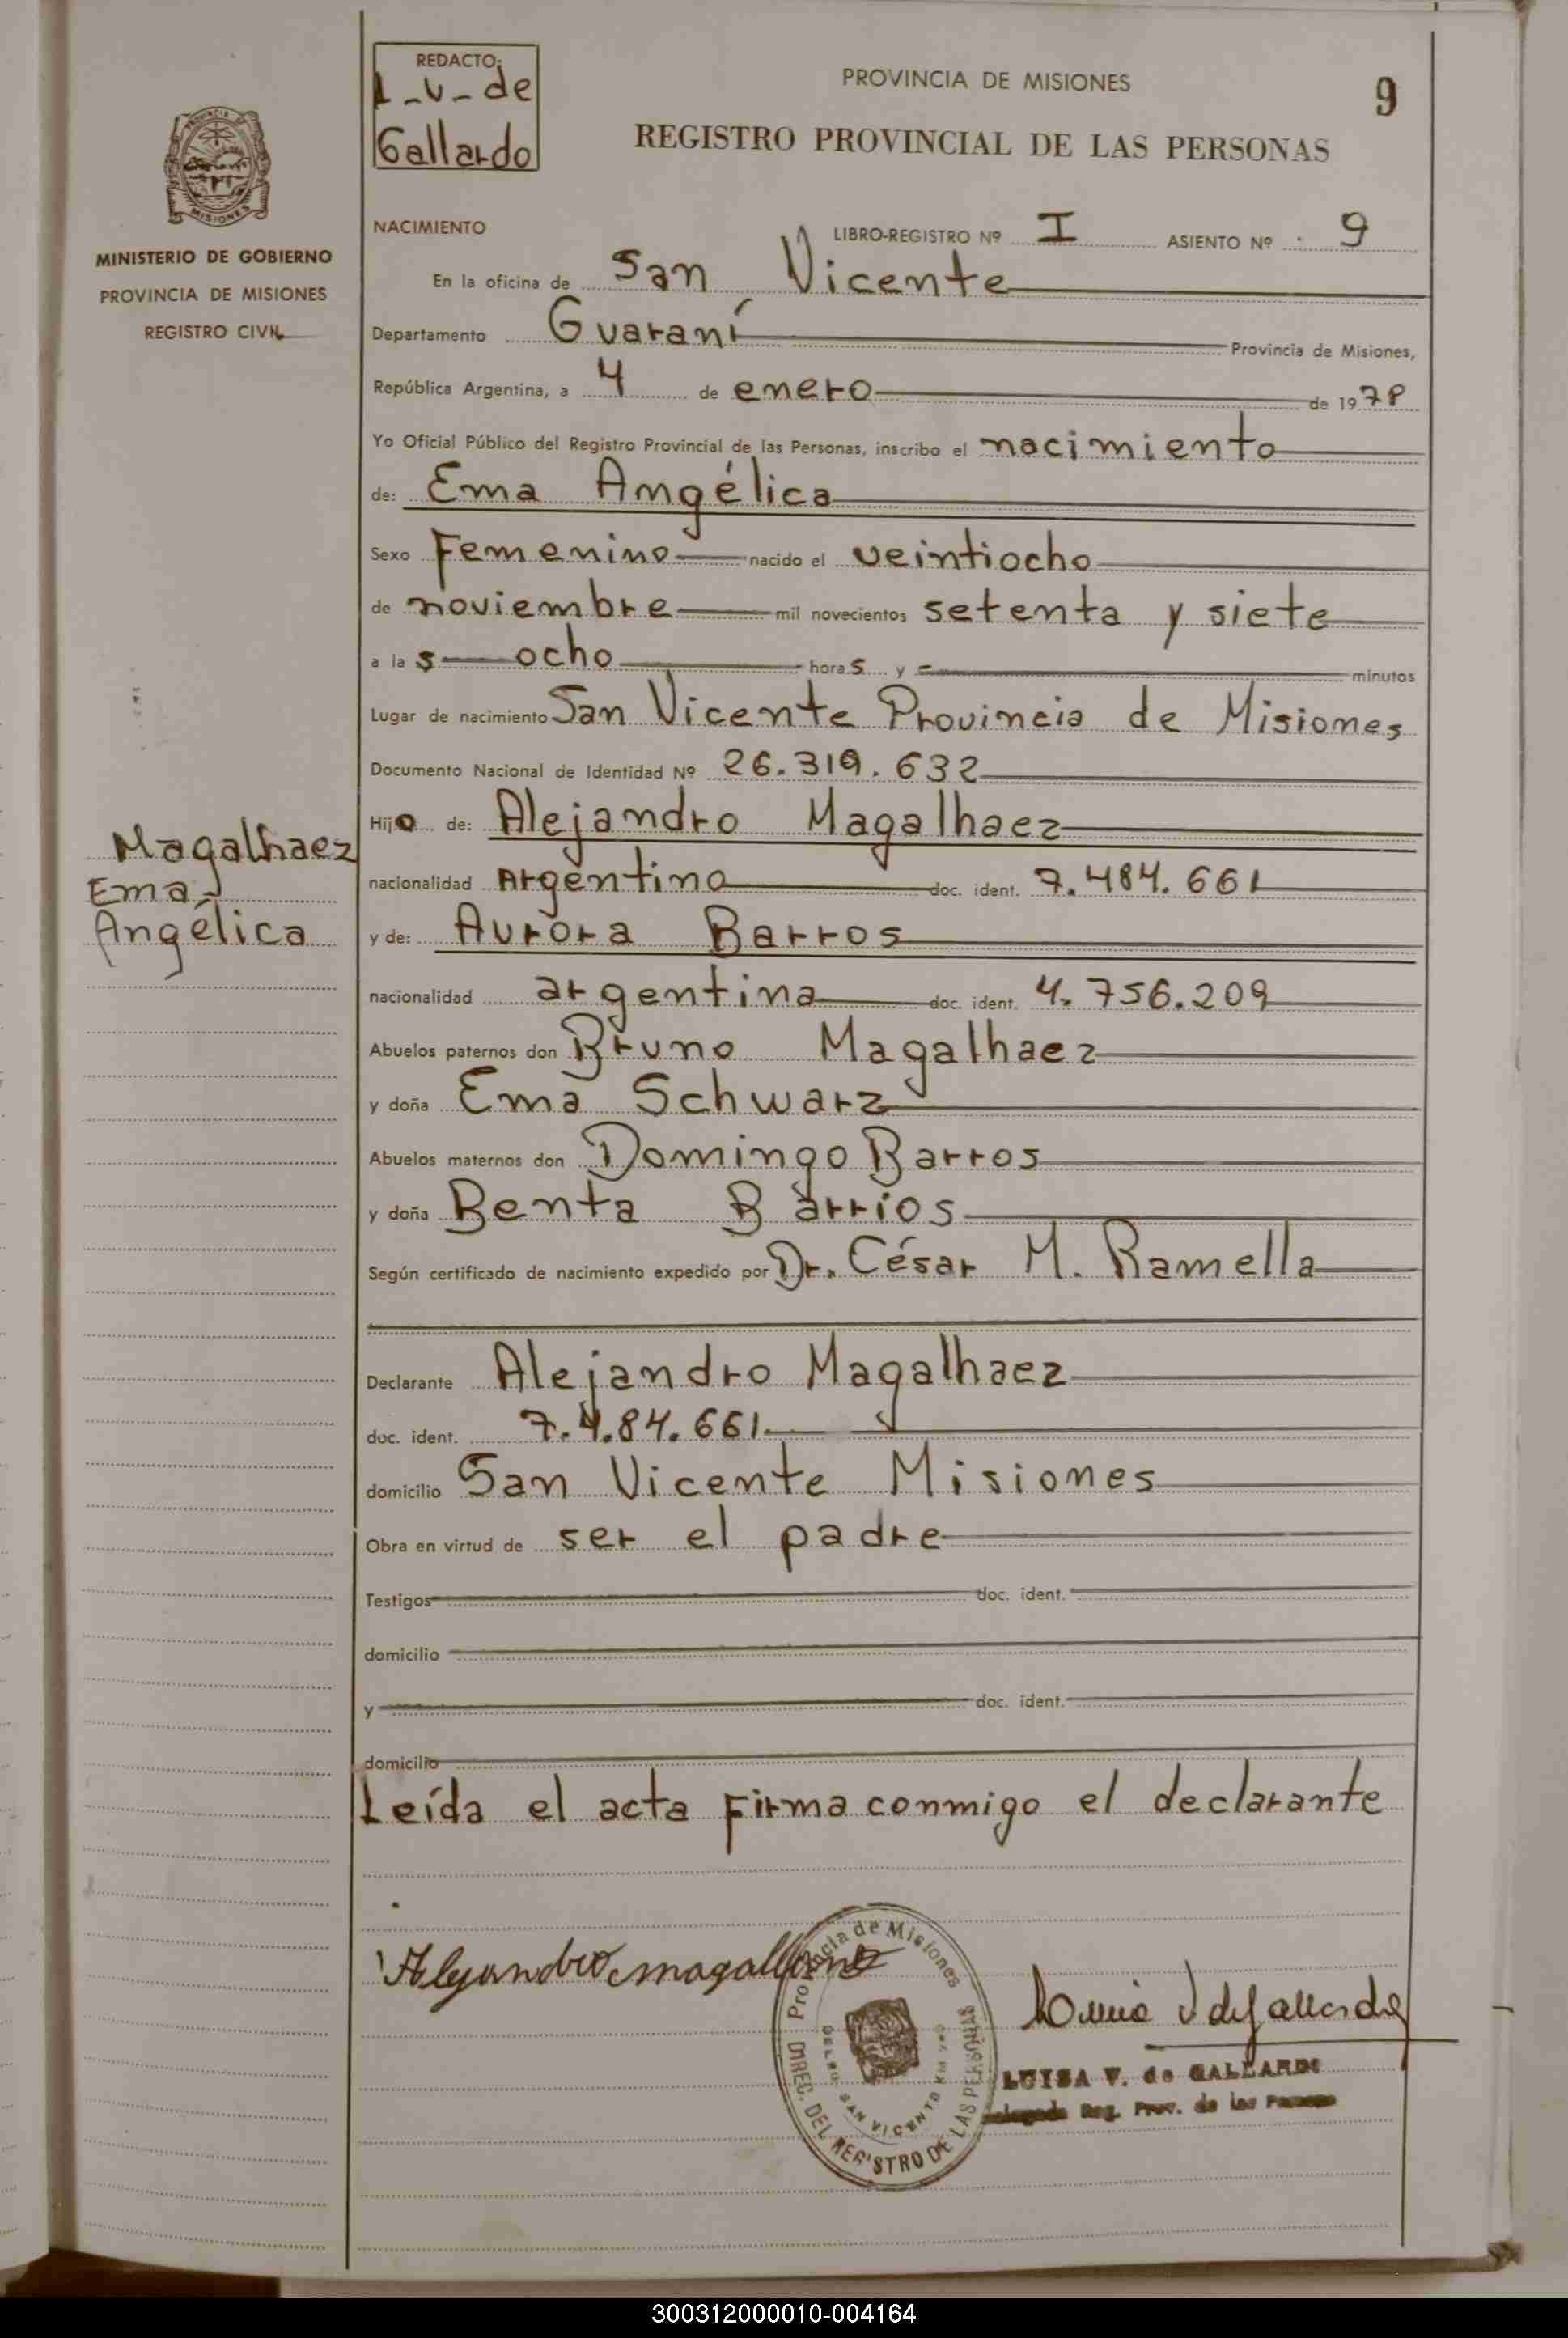 REDACTO:
L-V-de
Gallardo
PROVINCIA DE MISIONES
9
REGISTRO PROVINCIAL DE LAS PERSONAS
PROVINCIA DE
MISIONES
MINISTERIO DE GOBIERNO
PROVINCIA DE MISIONES
REGISTRO CIVIL
NACIMIENTO
LIBRO-REGISTRO Nº I ASIENTO Nº 9
En la oficina de San Vicente
Departamento Guaraní Provincia de Misiones,
República Argentina, a 4 de enero de 1978
Yo Oficial Público del Registro Provincial de las Personas, inscribo el nacimiento
de: Ema Angélica
Sexo Femenino nacido el veintiocho
de noviembre mil novecientos setenta y siete
a las ocho horas y minutos
Lugar de nacimiento San Vicente Provincia de Misiones
Documento Nacional de Identidad Nº 26.319.632
Hijo de: Alejandro Magalhaez
nacionalidad Argentino doc. ident. 7.484.661
Magalhaez
Ema
Angélica
y de: Aurora Barros
nacionalidad argentina doc. ident. 4.756.209
Abuelos paternos don Bruno Magalhaez
y doña Ema Schwarz
Abuelos maternos don Domingo Barros
y doña Benta Barrios
Según certificado de nacimiento expedido por Dr. César M. Ramella
Declarante Alejandro Magalhaez
doc. ident. 7.4.84.661
domicilio San Vicente Misiones
Obra en virtud de ser el padre
Testigos doc. ident.
domicilio
y doc. ident.
domicilio
Leída el acta firma conmigo el declarante
Alejandro magalhaez
Provincia de Misiones
DIREC. DEL REGISTRO DE LAS PERSONAS
SAN VICENTE
LUISA V. de GALLARDO
Delegada Reg. Prov. de las Personas
300312000010-004164